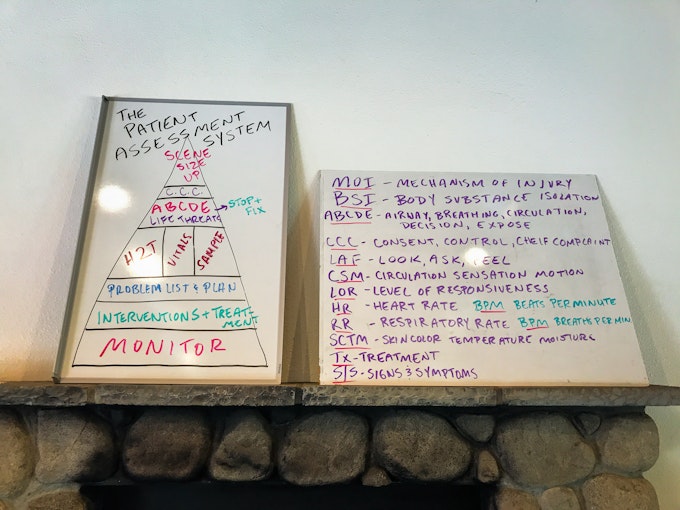 THE
PATIENT
ASSESSMENT
SYSTEM
SCENE
SIZE
UP
C.C.C.
ABCDE → STOP +
LIFE THREATS FIX
H2T VITALS SAMPLE
PROBLEM LIST & PLAN
INTERVENTIONS + TREAT-
MENT
MONITOR
MOI - MECHANISM OF INJURY
BSI - BODY SUBSTANCE ISOLATION
ABCDE - AIRWAY, BREATHING, CIRCULATION,
DECISION, EXPOSE
CCC - CONSENT, CONTROL, CHEIF COMPLAINT
LAF - LOOK, ASK, FEEL
CSM - CIRCULATION SENSATION MOTION
LOR - LEVEL OF RESPONSIVENESS
HR - HEART RATE BPM BEATS PER MINUTE
RR - RESPIRATORY RATE BPM BREATHS PER MIN
SCTM - SKIN COLOR TEMPERATURE MOISTURE
TX - TREATMENT
S/S - SIGNS & SYMPTOMS